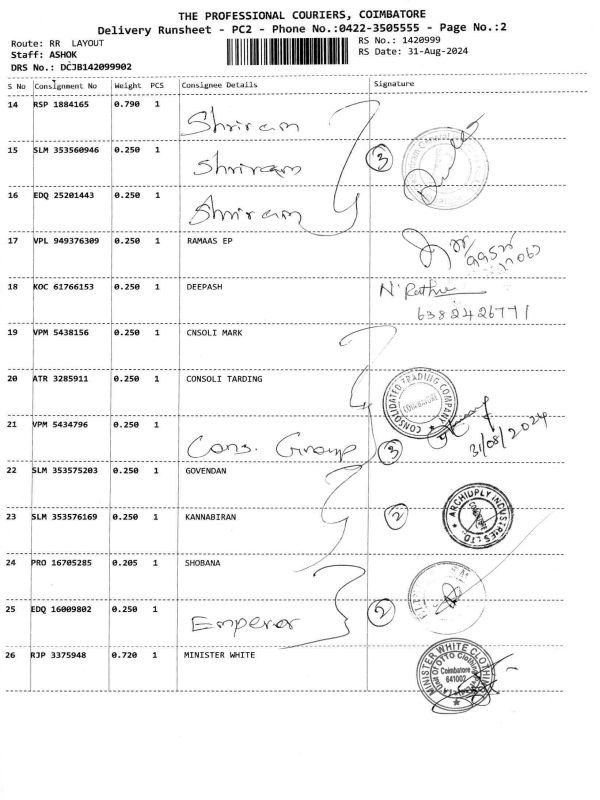 THE PROFESSIONAL COURIERS, COIMBATORE
Delivery Runsheet - PC2 - Phone No.:0422-3505555 - Page No.:2
Route: RR LAYOUT
RS No.: 1420999
Staff: ASHOK
RS Date: 31-Aug-2024
DRS No.: DCJB142099902
S No Consignment No Weight PCS Consignee Details Signature
14 RSP 1884165 0.790 1 Shriram
15 SLM 353560946 0.250 1 Shriram 3
16 EDQ 25201443 0.250 1 Shriram
17 VPL 949376309 0.250 1 RAMAAS EP
18 KOC 61766153 0.250 1 DEEPASH N. Rathna
6382426771
19 VPM 5438156 0.250 1 CNSOLI MARK
20 ATR 3285911 0.250 1 CONSOLI TARDING
CONSOLIDATED TRADING COMPANY
COIMBATORE
21 VPM 5434796 0.250 1 Cons. Group 3
31/08/2024
22 SLM 353575203 0.250 1 GOVENDAN
23 SLM 353576169 0.250 1 KANNABIRAN 2
ARCHIDPLY INDUSTRIES LTD.
24 PRO 16705285 0.205 1 SHOBANA
25 EDQ 16009802 0.250 1 Emperor 2
26 RJP 3375948 0.720 1 MINISTER WHITE
MINISTER WHITE CLOTHING
Coimbatore
641002